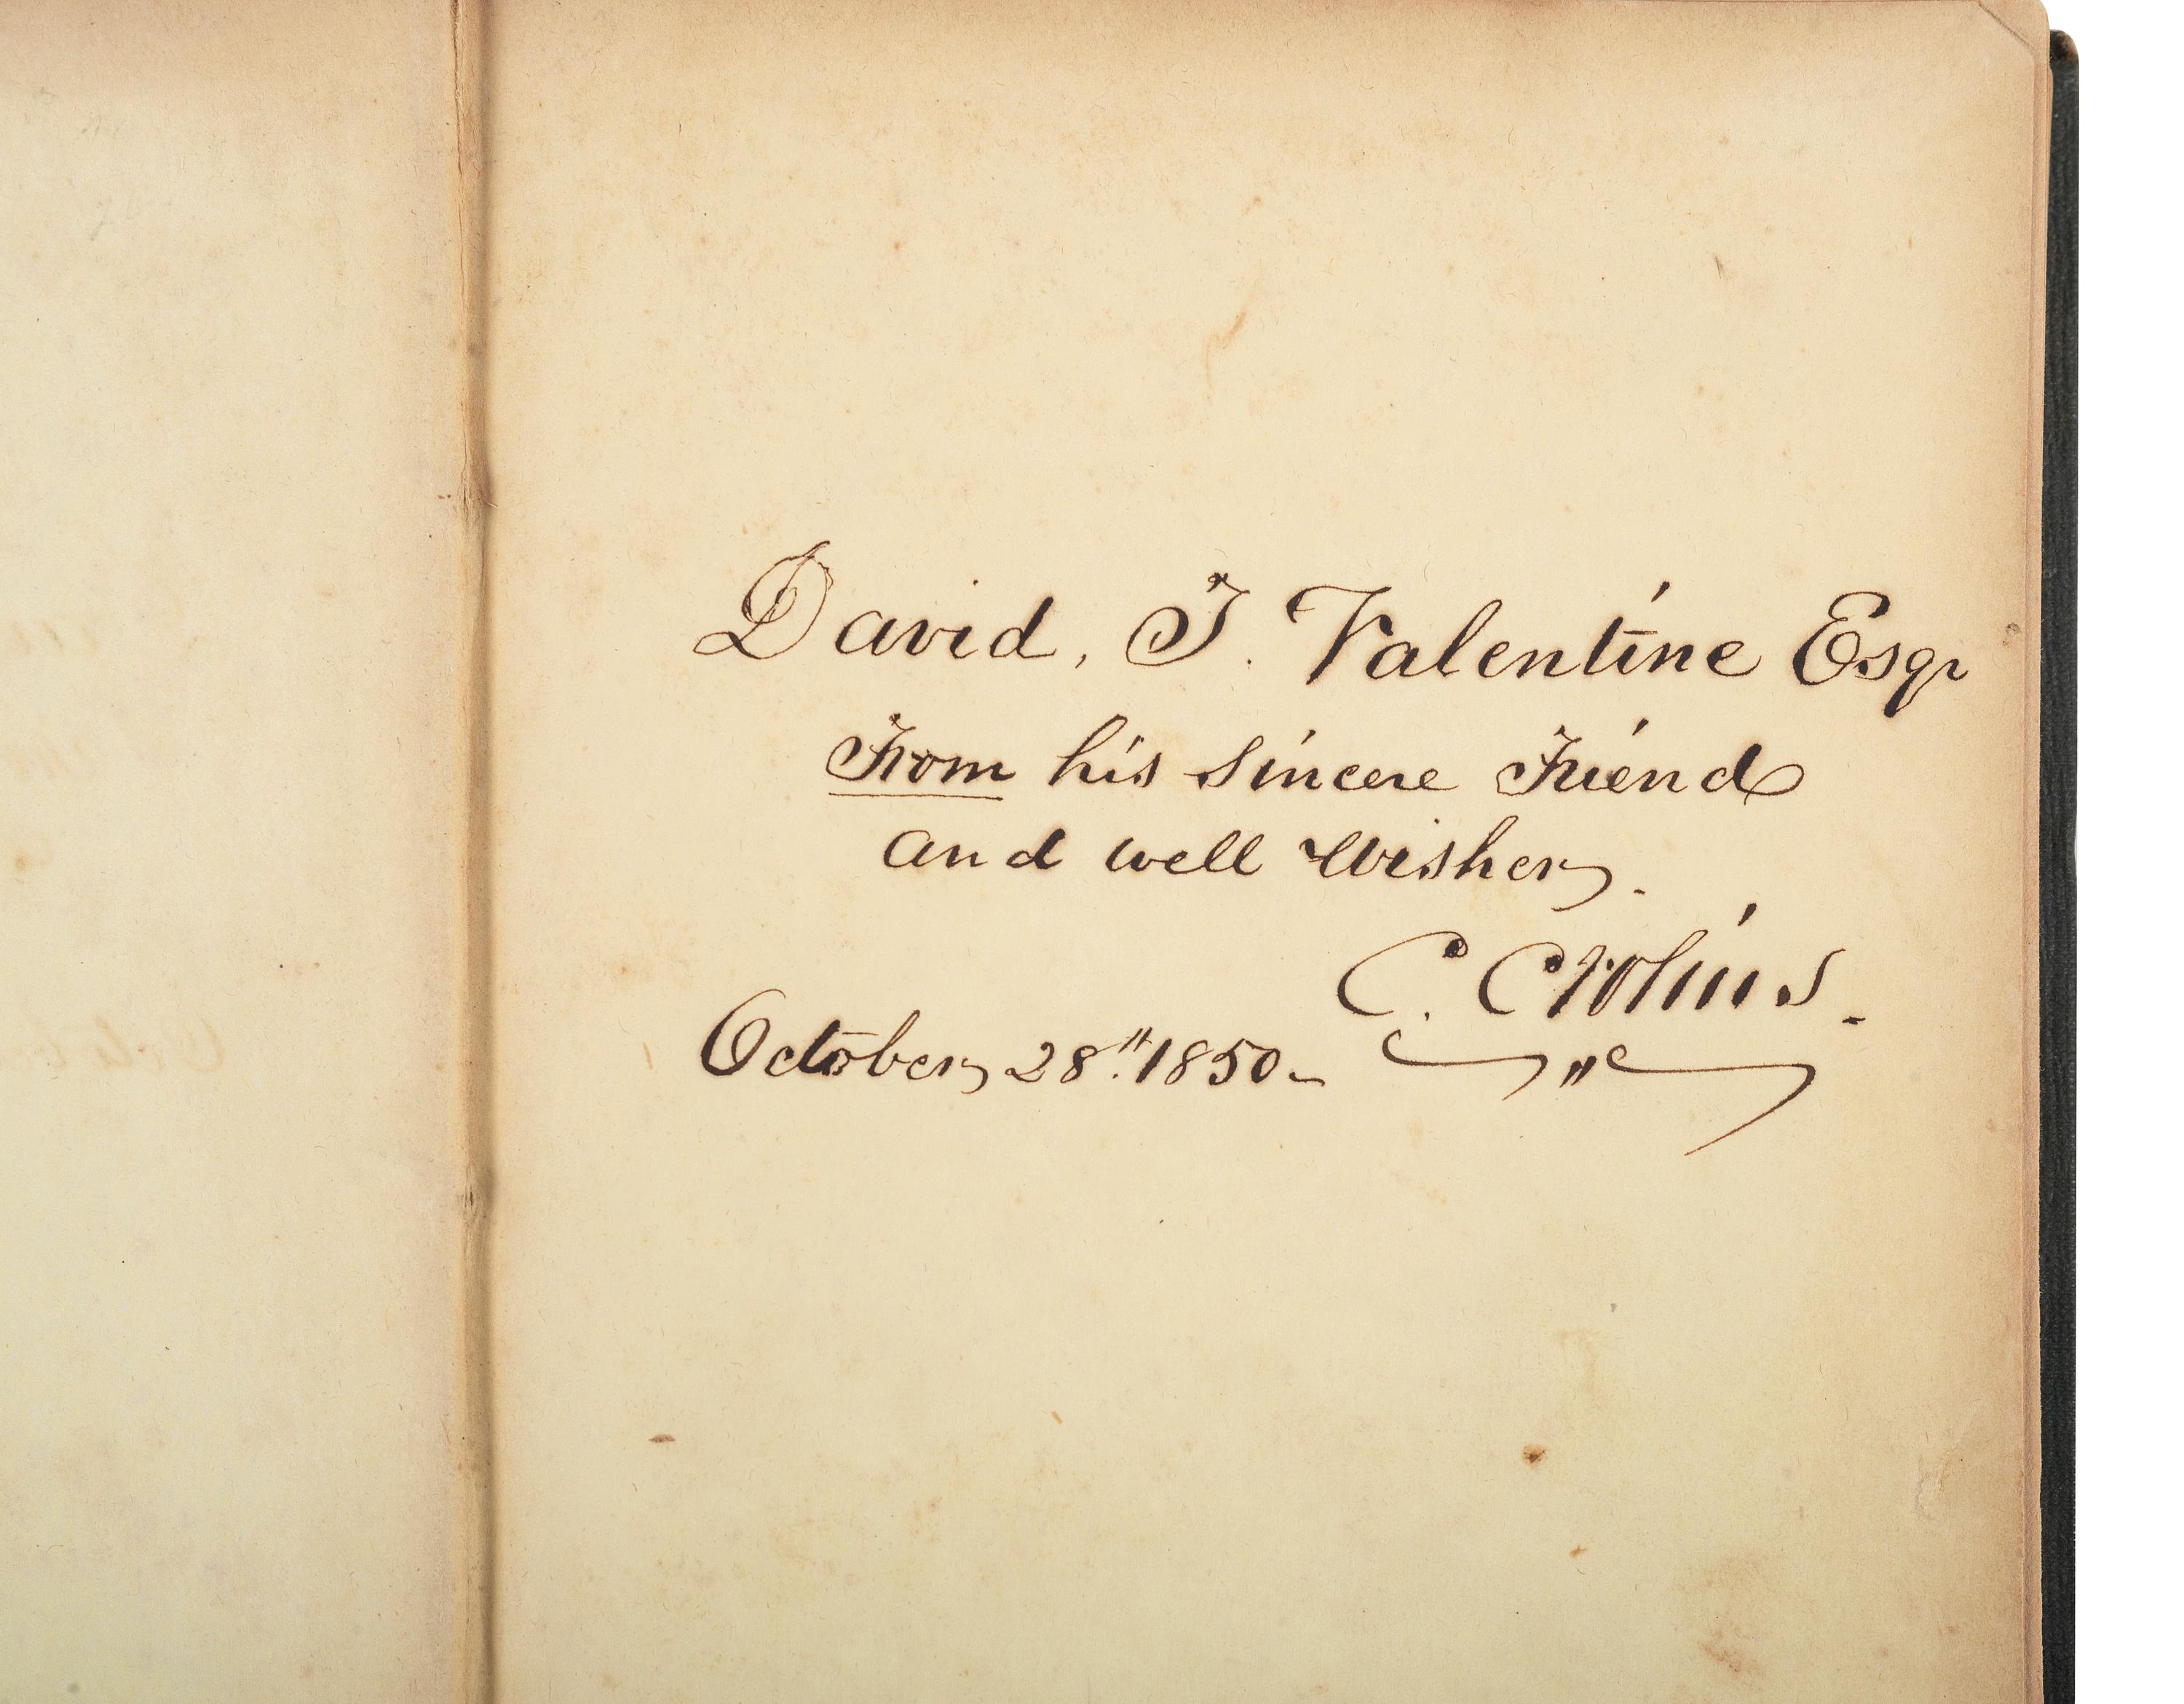 David, T. Valentine Esqr
From his Sincere Friend
and well Wisher.
C. Crolius.
October 28". 1850